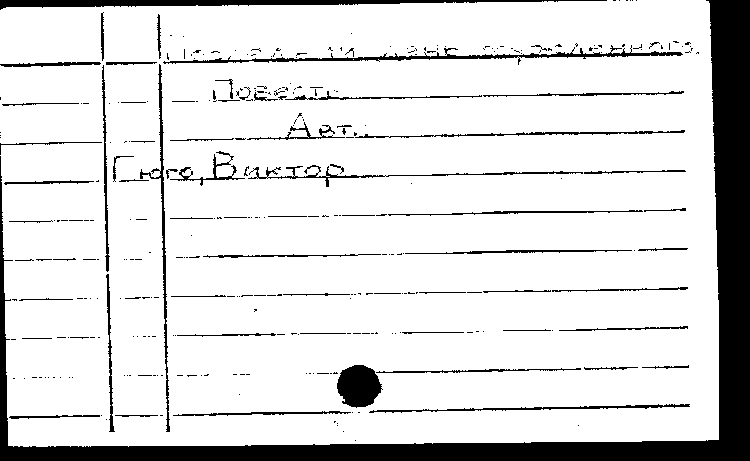 Последний день осужденного.
Повесть.
Авт.:
Гюго, Виктор